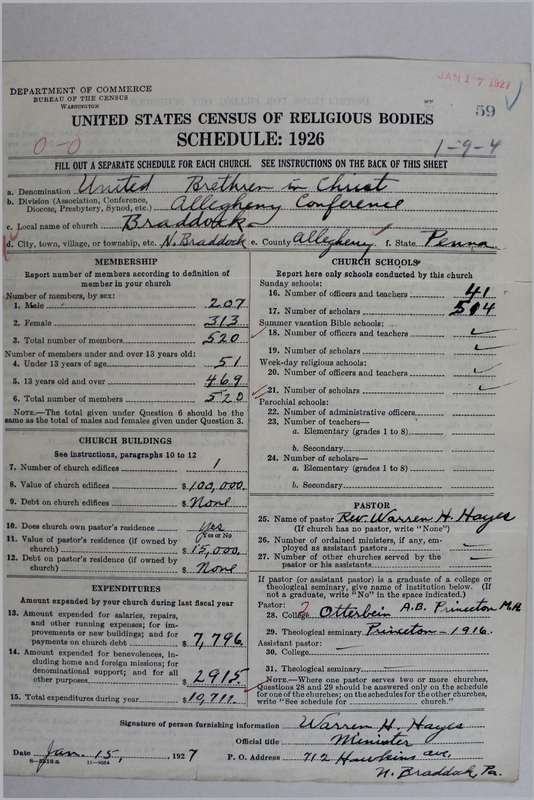 JAN 17 1927
DEPARTMENT OF COMMERCE
BUREAU OF THE CENSUS
WASHINGTON
59
UNITED STATES CENSUS OF RELIGIOUS BODIES
SCHEDULE: 1926
0-0
1-9-4
FILL OUT A SEPARATE SCHEDULE FOR EACH CHURCH. SEE INSTRUCTIONS ON THE BACK OF THIS SHEET
a. Denomination United Brethren in Christ
b. Division (Association, Conference, Diocese, Presbytery, Synod, etc.) Allegheny Conference
c. Local name of church Braddock
d. City, town, village, or township, etc. N. Braddock e. County Allegheny f. State Penna
MEMBERSHIP
Report number of members according to definition of member in your church
Number of members, by sex:
1. Male 207
2. Female 313
3. Total number of members 520
Number of members under and over 13 years old:
4. Under 13 years of age 51
5. 13 years old and over 469
6. Total number of members 520
NOTE.—The total given under Question 6 should be the same as the total of males and females given under Question 3.
CHURCH BUILDINGS
See instructions, paragraphs 10 to 12
7. Number of church edifices 1
8. Value of church edifices $100,000.
9. Debt on church edifices $None
10. Does church own pastor's residence Yes
Yes or No
11. Value of pastor's residence (if owned by church) $15,000.
12. Debt on pastor's residence (if owned by church) $None
EXPENDITURES
Amount expended by your church during last fiscal year
13. Amount expended for salaries, repairs, and other running expenses; for improvements or new buildings; and for payments on church debt $7,796.
14. Amount expended for benevolences, including home and foreign missions; for denominational support; and for all other purposes $2915
15. Total expenditures during year $10,711.
CHURCH SCHOOLS
Report here only schools conducted by this church
Sunday schools:
16. Number of officers and teachers 41
17. Number of scholars 514
Summer vacation Bible schools:
18. Number of officers and teachers
19. Number of scholars
Week-day religious schools:
20. Number of officers and teachers
21. Number of scholars
Parochial schools:
22. Number of administrative officers
23. Number of teachers—
a. Elementary (grades 1 to 8)
b. Secondary
24. Number of scholars—
a. Elementary (grades 1 to 8)
b. Secondary
PASTOR
25. Name of pastor Rev. Warren H. Hayes
(If church has no pastor, write "None")
26. Number of ordained ministers, if any, employed as assistant pastors —
27. Number of other churches served by the pastor or his assistants —
If pastor (or assistant pastor) is a graduate of a college or theological seminary, give name of institution below. (If not a graduate, write "No" in the space indicated.)
Pastor:
28. College 2 Otterbein A.B. Princeton M.A.
29. Theological seminary Princeton - 1916.
Assistant pastor:
30. College
31. Theological seminary
NOTE.—Where one pastor serves two or more churches, Questions 28 and 29 should be answered only on the schedule for one of the churches; on the schedules for the other churches, write "See schedule for church."
Signature of person furnishing information Warren H. Hayes
Official title Minister
Date Jan. 15, 1927 P. O. Address 712 Hawkins ave,
N. Braddock, Pa.